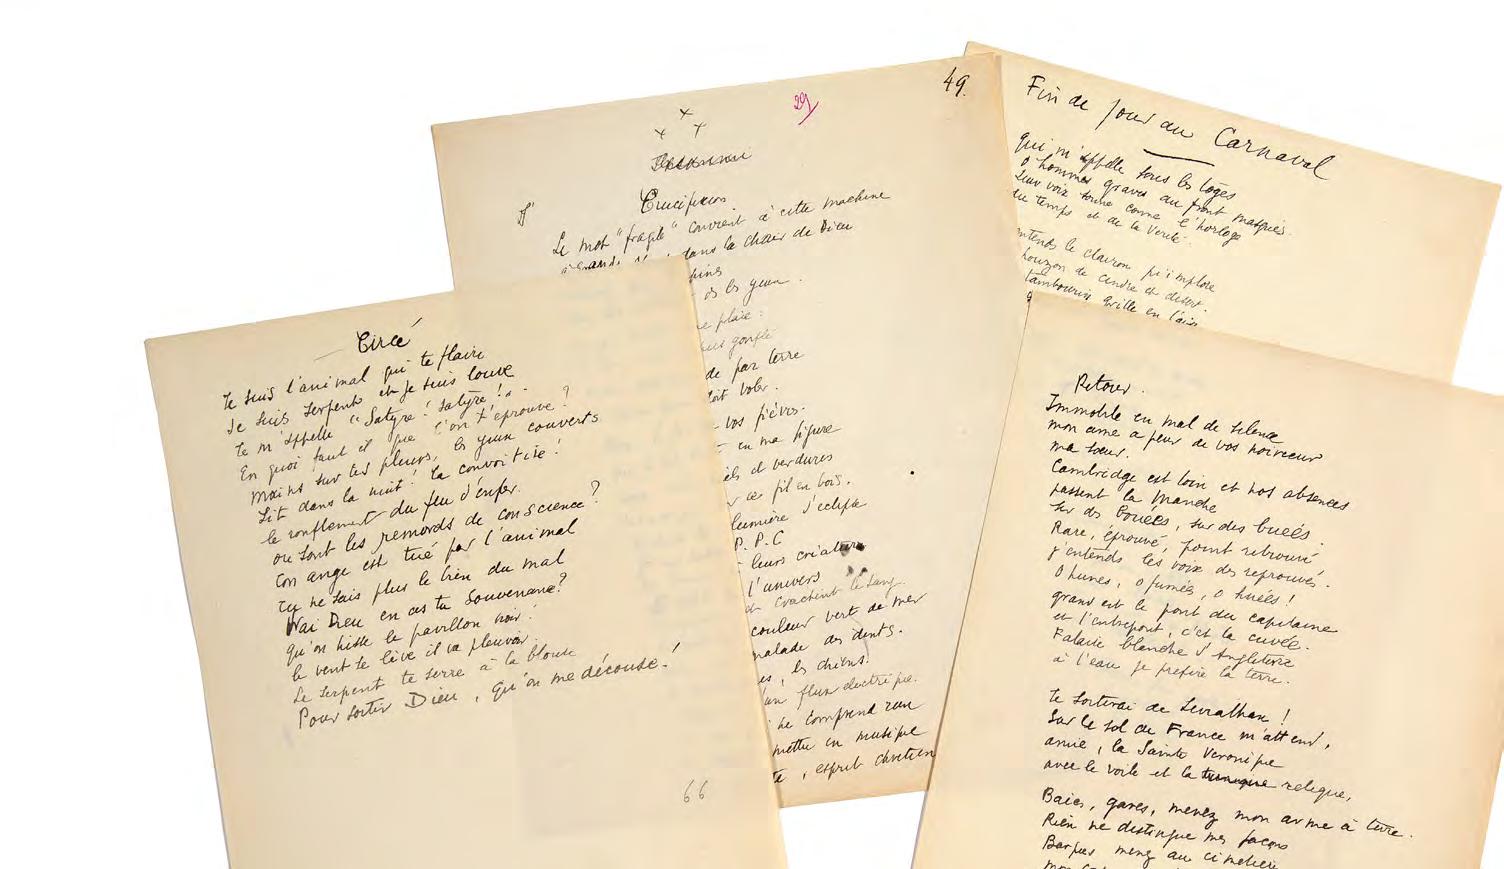 Circé
Je suis l'animal qui te flaire
Je suis serpent et je suis louve
Je m'appelle "Satyre! Satyre!"
En quoi faut il que l'on t'éprouve?
mains sur tes pleurs, les yeux couverts
Lit dans la nuit! la convoitise!
le ronflement du feu d'enfer.
où sont les remords de conscience?
Ton ange est tué par l'animal
Tu ne sais plus le bien du mal
Vrai Dieu en as tu souvenance?
qu'on hisse le pavillon noir!
le vent se lève il va pleuvoir.
Le serpent te serre à la blouse
Pour sortir Dieu, qu'on me découse!
66
29
49.
Crucifixion
Le mot "fragile" convient à cette machine
dans la chair de Dieu
les yeux.
plaie:
gonflé
de par terre
voler.
vos fièvres.
en ma figure
et verdures
ce fil en bois.
lumière s'éclipse
P.P.C
leurs créature
l'univers
crachent le sang.
couleur vert de mer
malade des dents.
les chiens!
un flux électrique.
ne comprend rien
mettre en musique
, esprit chrétien
Fin de Jour au Carnaval
Qui m'appelle sous les loges
O hommes graves au front masqués.
Leur voix sonne comme l'horloge
du temps et de la Vérité.
entends le clairon qui implore
horizon de cendre et désert.
tambourin grille en l'air
Retour.
Immobile en mal de silence
mon âme a peur de vos noirceur
ma sœur.
Cambridge est loin et nos absences
passent la Manche
sur des bouées, sur des buées.
Rare, éprouvé, point retrouvé
J'entends les voix des réprouvés.
O hunes, o fumées, o huées!
grand est le pont du capitaine
et l'entrepont, c'est la cuvée.
Falaise blanche d'Angleterre
à l'eau je préfère la terre.
Je sortirai de Leviathan!
Sur le sol de France m'attend,
amie, la Sainte Véronique
avec le voile et la tunique relique,
Baies, gares, menez mon arme à terre.
Rien ne distingue mes façons
Barques menez au cimetière